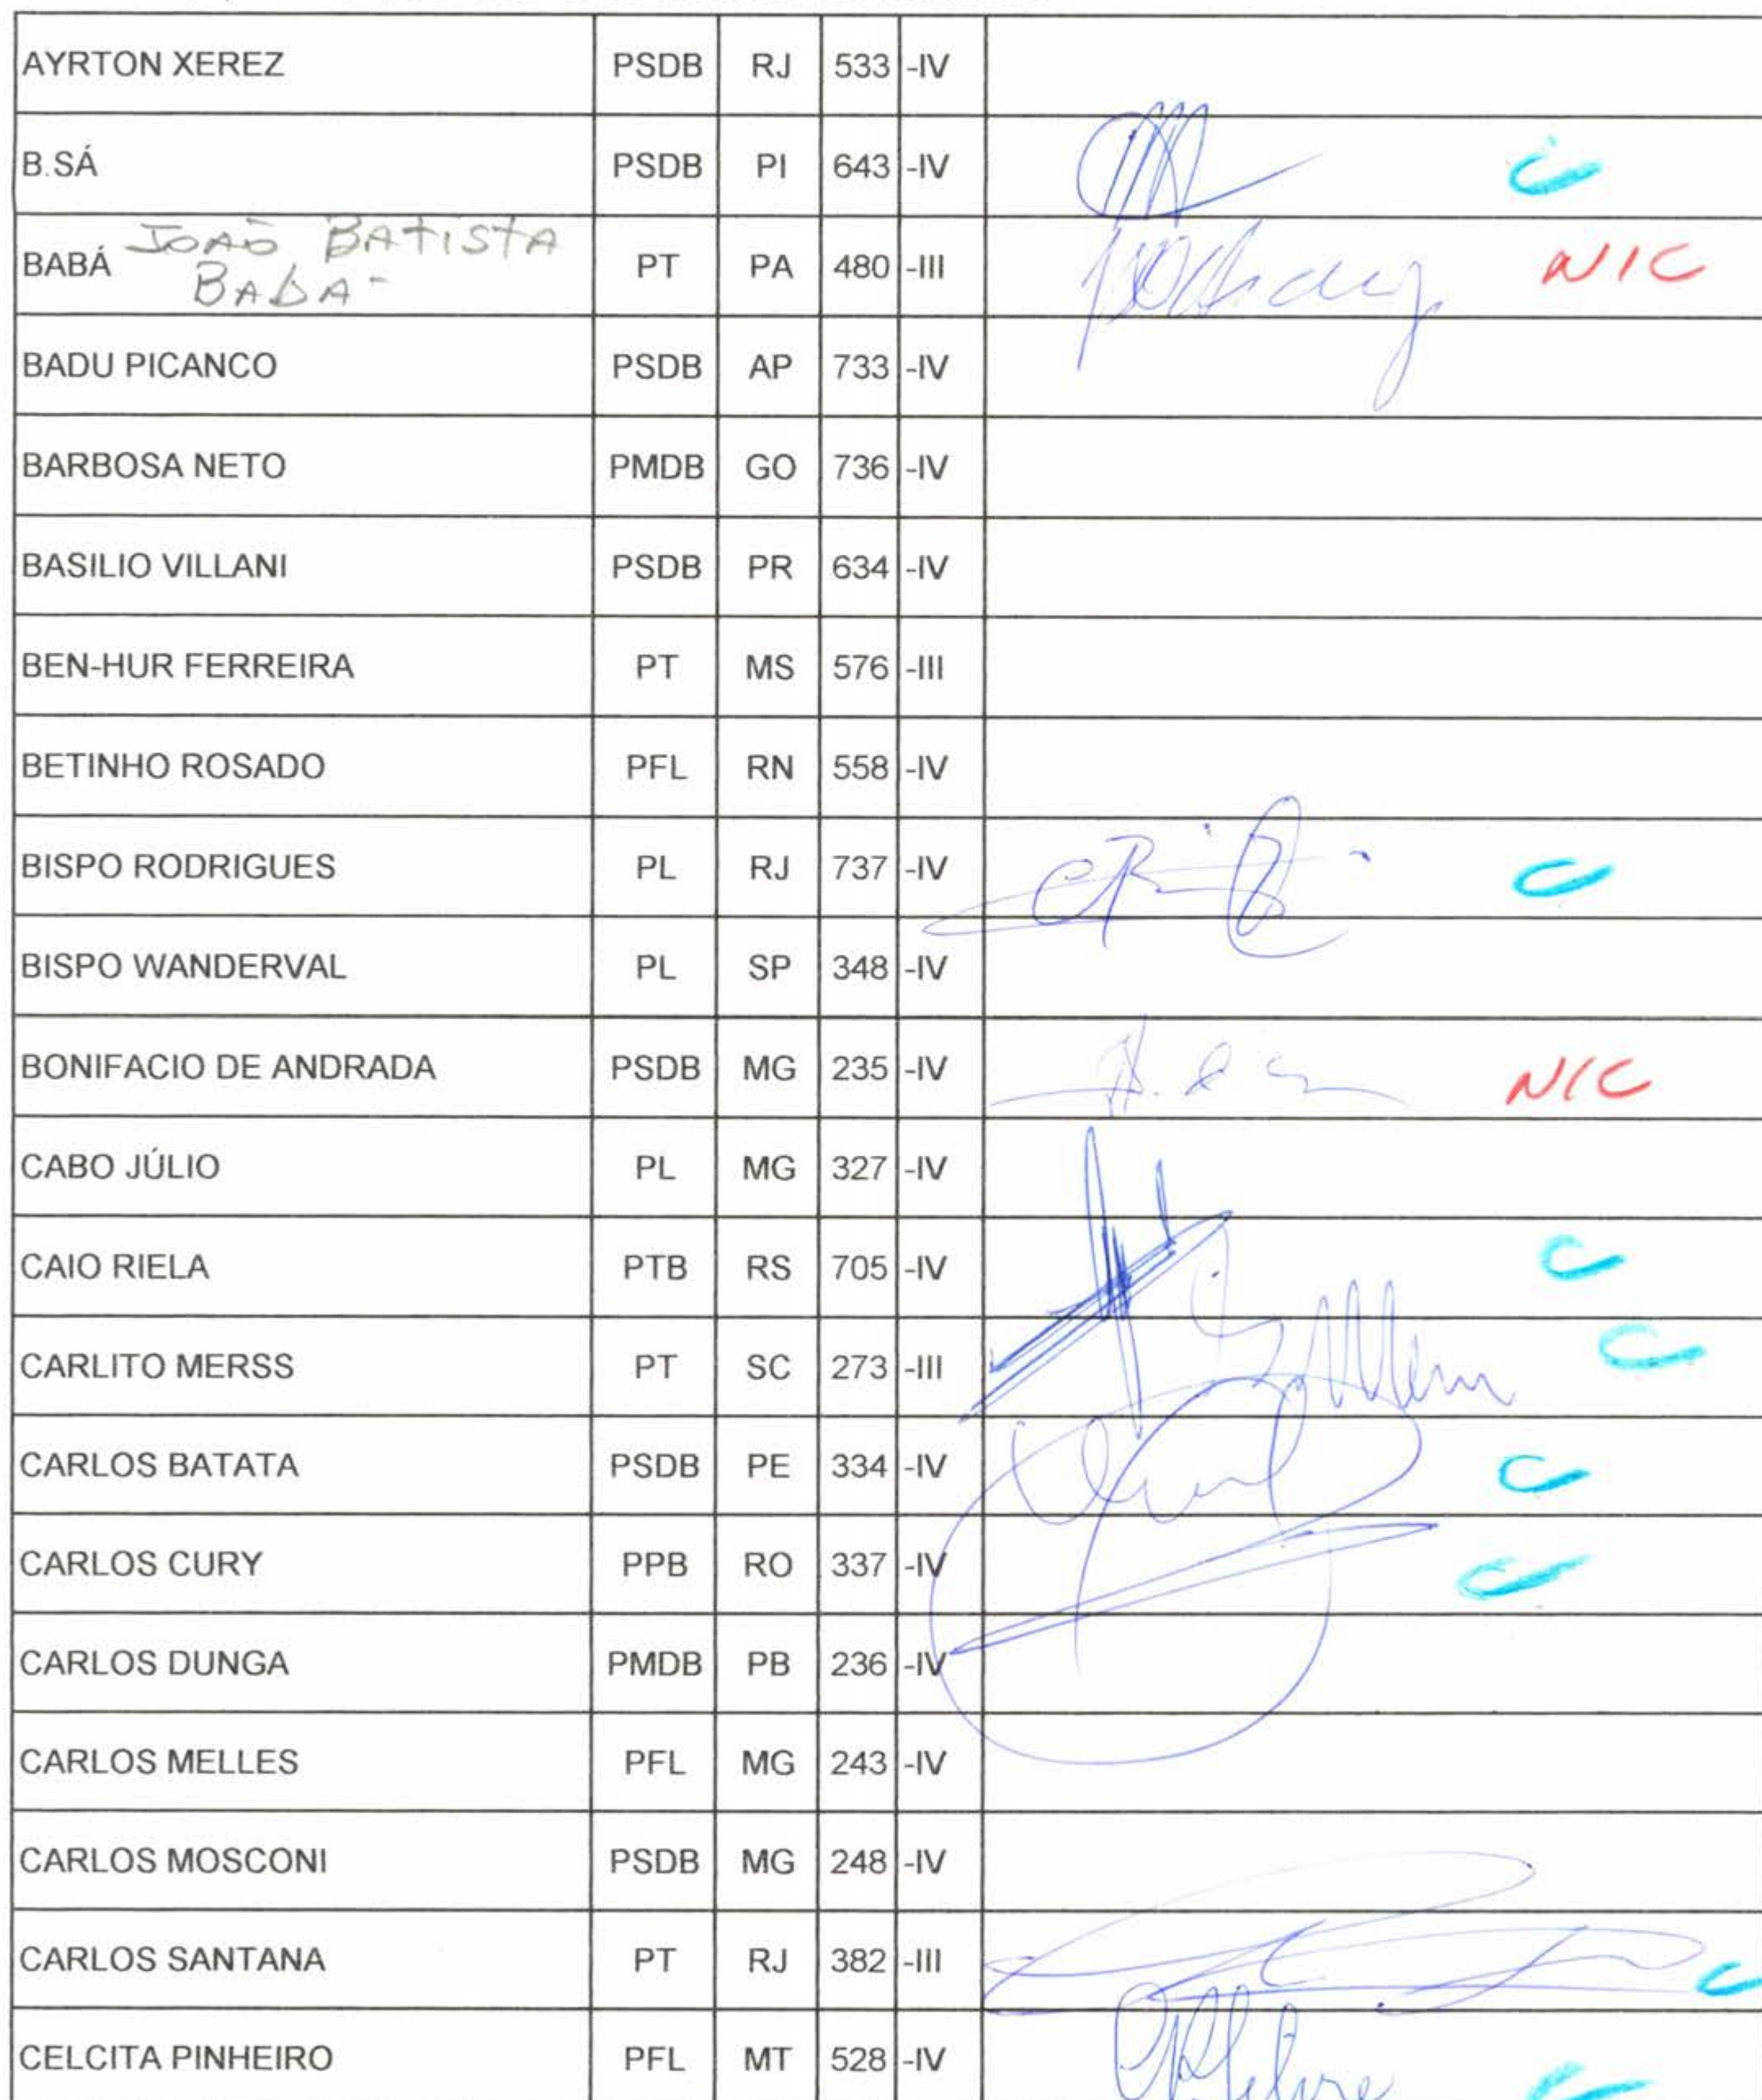 AYRTON XEREZ PSDB RJ 533 -IV
B.SÁ PSDB PI 643 -IV C
BABÁ JOÃO BATISTA PT PA 480 -III NIC
BABA-
BADU PICANCO PSDB AP 733 -IV
BARBOSA NETO PMDB GO 736 -IV
BASILIO VILLANI PSDB PR 634 -IV
BEN-HUR FERREIRA PT MS 576 -III
BETINHO ROSADO PFL RN 558 -IV
BISPO RODRIGUES PL RJ 737 -IV C
BISPO WANDERVAL PL SP 348 -IV
BONIFACIO DE ANDRADA PSDB MG 235 -IV NIC
CABO JÚLIO PL MG 327 -IV
CAIO RIELA PTB RS 705 -IV C
CARLITO MERSS PT SC 273 -III C
CARLOS BATATA PSDB PE 334 -IV C
CARLOS CURY PPB RO 337 -IV C
CARLOS DUNGA PMDB PB 236 -IV
CARLOS MELLES PFL MG 243 -IV
CARLOS MOSCONI PSDB MG 248 -IV
CARLOS SANTANA PT RJ 382 -III C
CELCITA PINHEIRO PFL MT 528 -IV